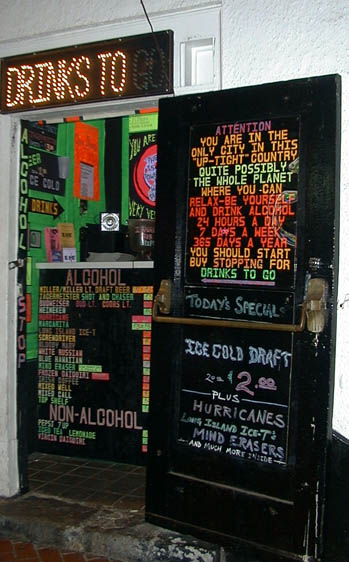 DRINK'S TO GO
ATTENTION
YOU ARE IN THE
ONLY CITY IN THIS
"UP-TIGHT" COUNTRY
QUITE POSSIBLY
THE WHOLE PLANET
WHERE YOU CAN
RELAX-BE YOURSELF
AND DRINK ALCOHOL
24 HOURS A DAY
7 DAYS A WEEK
365 DAYS A YEAR
YOU SHOULD START
BUY STOPPING FOR
DRINKS TO GO
TODAY'S SPECIALS
ICE COLD DRAFT
20oz $2.00
PLUS
HURRICANES
LONG ISLAND ICE-T'S
MIND ERASERS
AND MUCH MORE INSIDE
ALCOHOL
STOP
BEER
ICE COLD
DRINKS
YOU ARE
VERY
ALCOHOL
KILLER/KILLER LT. DRAFT BEER
JAGERMEISTER SHOT AND CHASER
BUDWEISER BUD LT. COORS LT.
HEINEKEN
HURRICANE
MARGARITA
ICE-T
SCREWDRIVER
WHITE RUSSIAN
BLUE HAWAIIAN
MIND ERASER
FROZEN DAIQUIRI
IRISH COFFEE
MIXED WELL
MIXED CALL
UP SHELF
NON-ALCOHOL
PEPSI 7UP
ICED TEA LEMONADE
VIRGIN DAIQUIRI